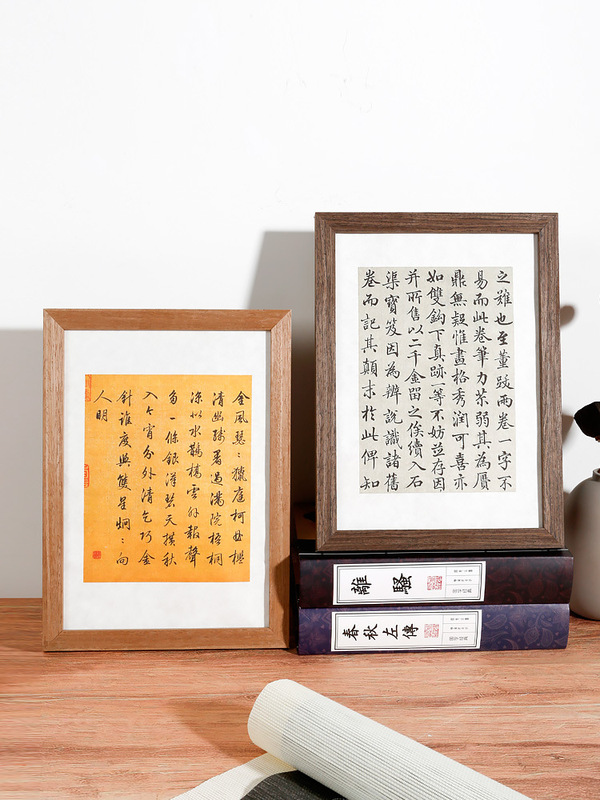 之難也至董跋兩卷一字不
易而此卷筆力苶弱其為贗
鼎無疑惟畫格秀潤可喜亦
如雙鈎下真跡一等不妨並存因
并所售以二千金留之俟續入石
渠寶笈因為辨說識諸舊
卷而記其顛末於此俾知
金風瑟〻獵庭柯曲檻
清幽殘暑過滿院梧桐
涼似水鵲橋雲外報聲
多一條銀漢碧天橫秋
入今宵分外清乞巧金
針誰度與雙星炯〻向
人明
離騷
春秋左傳